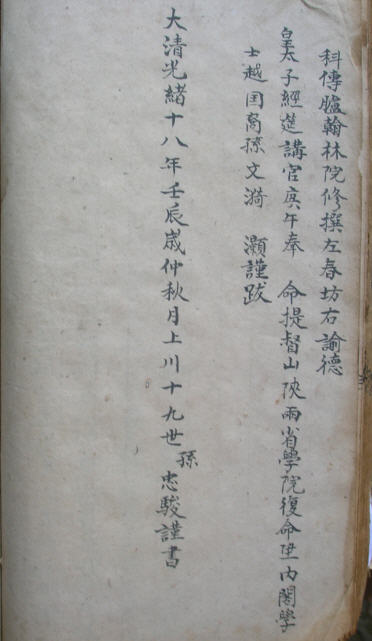 科傳臚翰林院修撰左春坊右諭德
皇太子經筵講官庚午奉　命提督山陝兩省學院復命陞內閣學
士越国裔孫文漪　灝謹跋
大清光緒十八年壬辰歲仲秋月上川十九世孫忠駿謹書